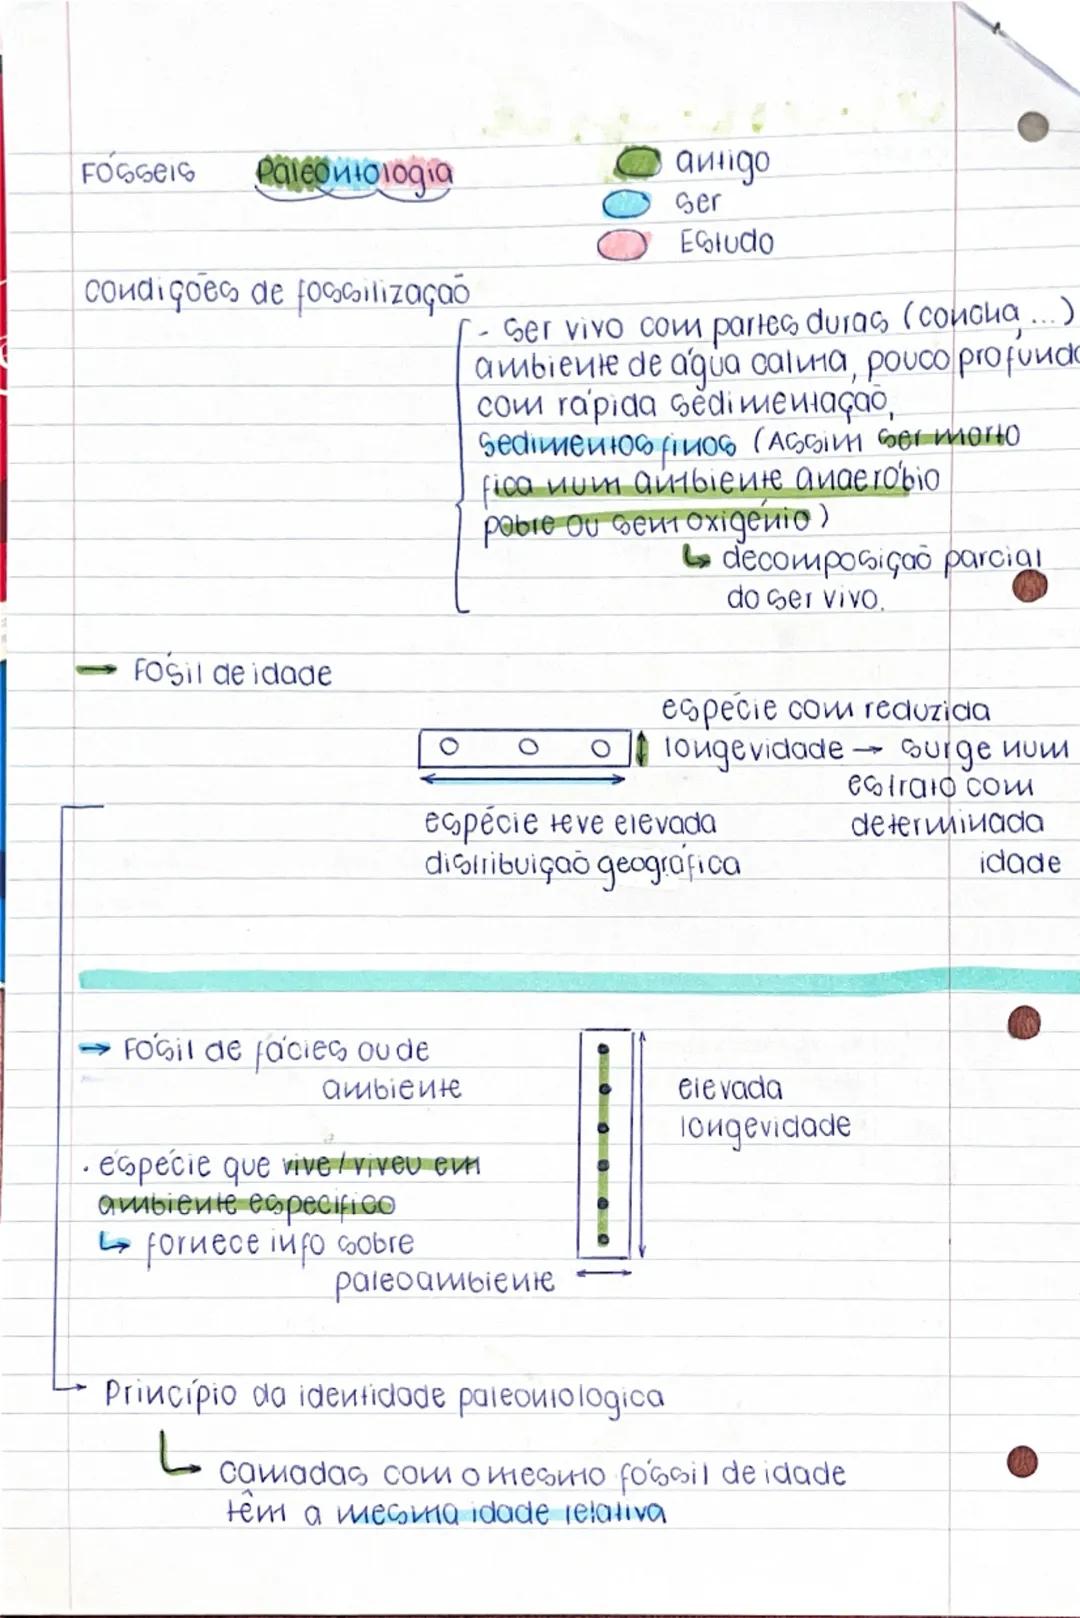 FÓSSEIS Paleontologia
antigo
Ser
Estudo
condições de fossilização
- Ser vivo com partes duras (concha ...)
ambiente de água calma, pouco profundo
com rápida sedimentação,
sedimentos finos (Assim ser morto
fica num ambiente anaeróbio
pobre ou sem oxigénio)
↳ decomposição parcial
do ser vivo.
→ Fósil de idade
espécie com reduzida
longevidade → surge num
estrato com
determinada
idade
espécie teve elevada
distribuição geográfica
→ Fósil de fácies ou de
ambiente
elevada
longevidade
. espécie que vive/viveu em
ambiente especifico
↳ fornece info sobre
paleoambiente
→ Princípio da identidade paleontologica
↳ camadas com o mesmo fóssil de idade
têm a mesma idade relativa